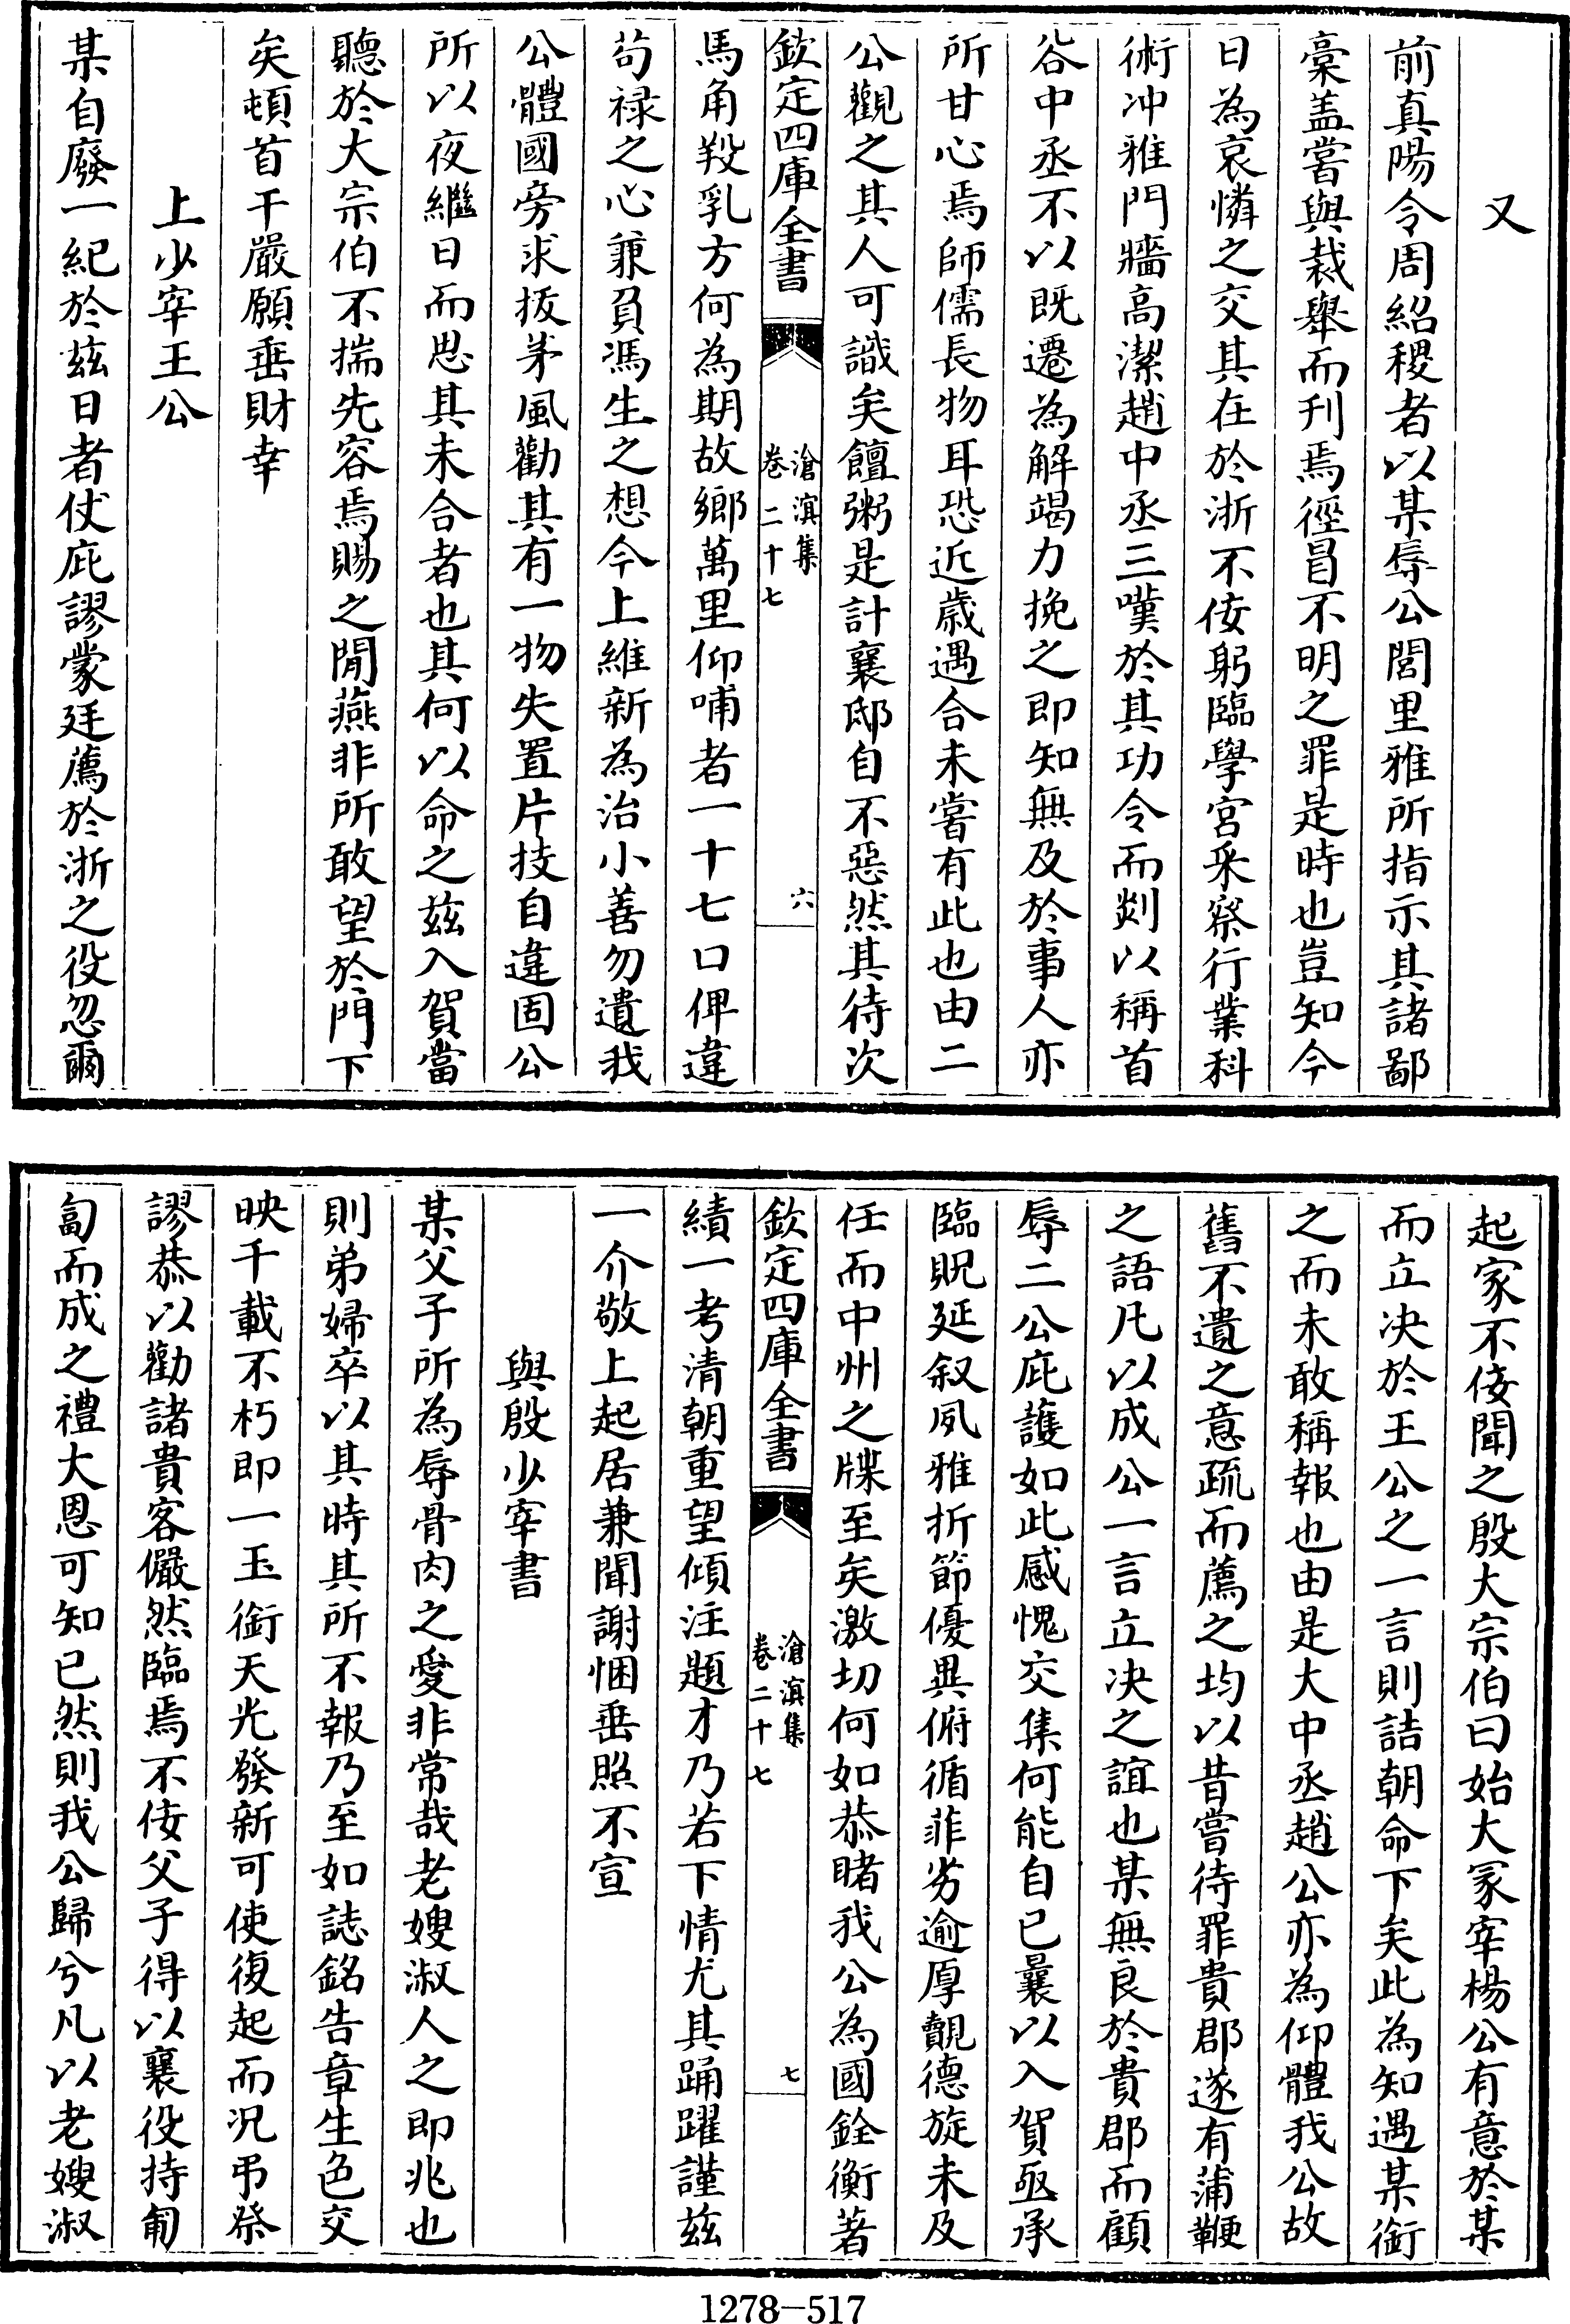 又
前真陽令周紹稷者以某辱公閭里雅所指示其諸鄙
槀盖嘗與裁舉而刋焉徑冒不明之罪是時也豈知今
日為哀憐之交其在於浙不佞躬臨學宮采察行業科
術冲雅門牆高潔趙中丞三嘆於其功令而剡以稱首
谷中丞不以既遷為解竭力挽之即知無及於事人亦
所甘心焉師儒長物耳恐近歲遇合未嘗有此也由二
公觀之其人可識矣饘粥是計襄邸自不惡然其待次
欽定四庫全書
滄溟集
卷二十七
六
馬角羖乳方何為期故鄉萬里仰哺者一十七口俾違
苟禄之心兼負馮生之想今上維新為治小善勿遺我
公體國旁求拔茅風勸其有一物失置片技自違固公
所以夜繼日而思其未合者也其何以命之兹入賀當
聽於大宗伯不揣先容焉賜之閒燕非所敢望於門下
矣頓首干嚴願垂財幸
上少宰王公
某自廢一紀於兹日者仗庇謬蒙廷薦於浙之役忽爾
起家不佞聞之殷大宗伯曰始大冢宰楊公有意於某
而立决於王公之一言則詰朝命下矣此為知遇某銜
之而未敢稱報也由是大中丞趙公亦為仰體我公故
舊不遺之意疏而薦之均以昔嘗待罪貴郡遂有蒲鞭
之語凡以成公一言立决之誼也某無良於貴郡而顧
辱二公庇護如此感愧交集何能自已曩以入賀亟承
臨貺延叙夙雅折節優異俯循菲劣逾厚覿德旋未及
任而中州之牒至矣激切何如恭睹我公為國銓衡著
欽定四庫全書
滄溟集
卷二十七
七
績一考清朝重望傾注題才乃若下情尤其踊躍謹兹
一介敬上起居兼聞謝悃垂照不宣
與殷少宰書
某父子所為辱骨肉之愛非常哉老嫂淑人之即兆也
則弟婦卒以其時其所不報乃至如誌銘告章生色交
映千載不朽即一玉銜天光發新可使復起而况弔祭
謬恭以勸諸貴客儼然臨焉不佞父子得以襄役持匍
匐而成之禮大恩可知已然則我公歸兮凡以老嫂淑
1278—517